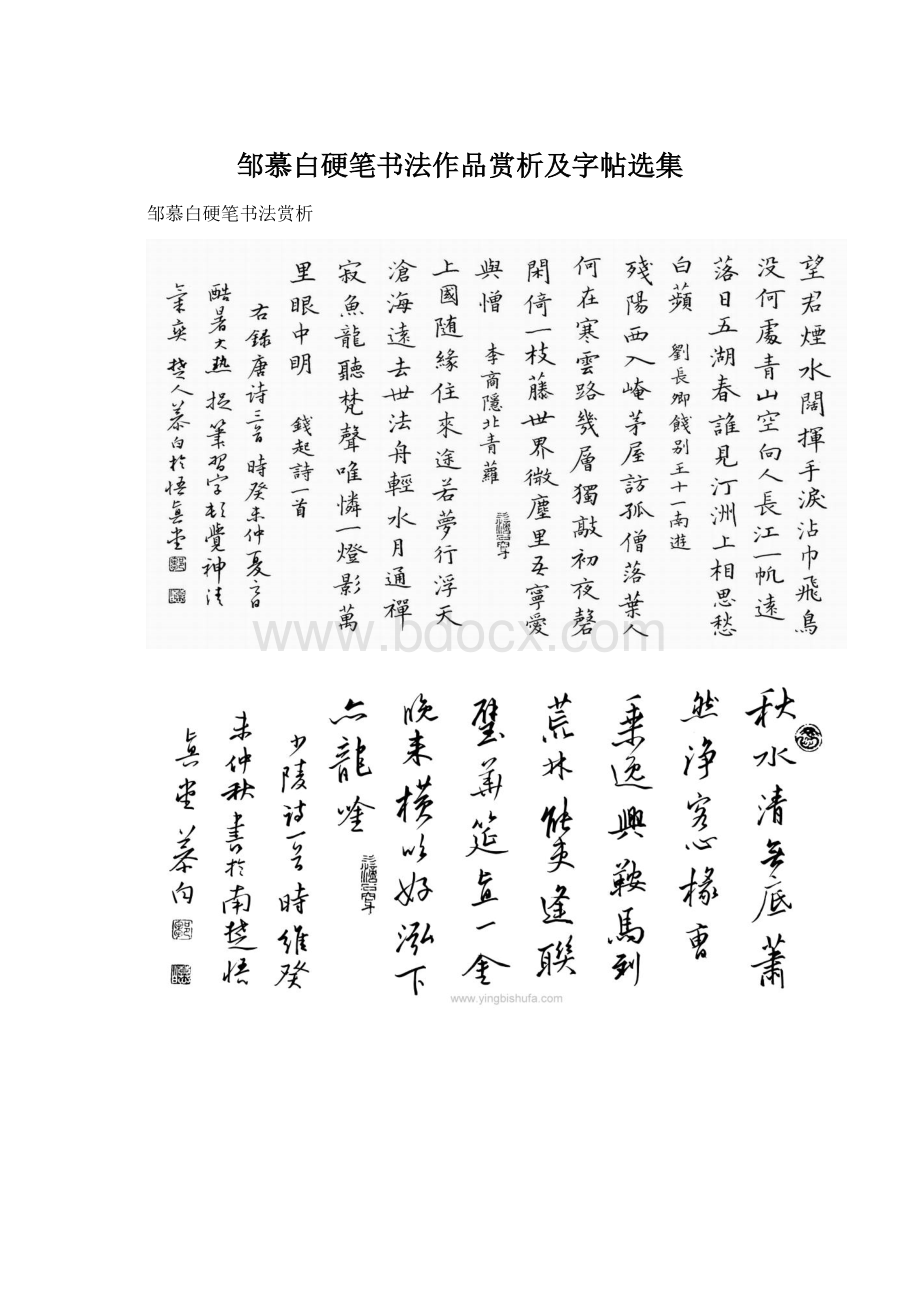 邹慕白硬笔书法作品赏析及字帖选集
邹慕白硬笔书法赏析
望君煙水闊揮手淚沾巾飛鳥
没何處青山空向人長江一帆遠
落日五湖春誰見汀洲上相思愁
白蘋 劉長卿餞别王十一南遊
殘陽西入崦茅屋訪孤僧落葉人
何在寒雲路幾層獨敲初夜磬
閑倚一枝藤世界微塵里吾寧愛
與憎 李商隱北青蘿
上國随緣住來途若夢行浮天
滄海遠去世法舟輕水月通禪
寂魚龍聽梵聲唯憐一燈影萬
里眼中明 錢起詩一首
右錄唐诗三首時癸未仲夏之日
酷暑大热提筆習字頓覺神清
氣爽楚人慕白於悟真堂
www.bdocx.com
秋水清無底蕭
然净客心掾曹
乗逸興鞍馬到
荒林能吏逢聯
璧華筵直一金
晚来横吹好泓下
亦龍唫
少陵诗一首時維癸
未仲秋書於南楚悟
真堂慕白
www.yingbishufa.com